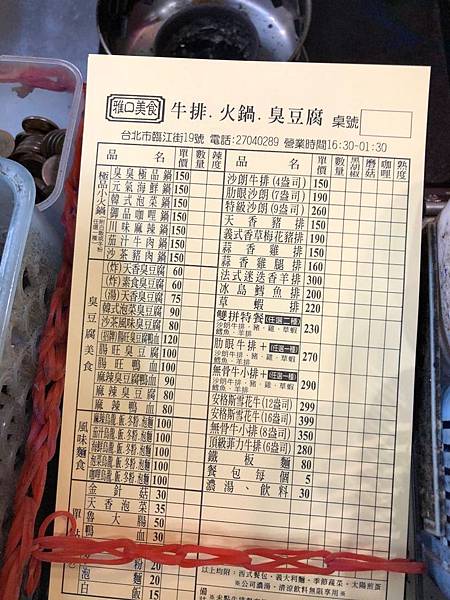 雅口美食 牛排.火鍋.臭豆腐 桌號
台北市臨江街19號 電話:27040289 營業時間16:30-01:30
品名 單價 數量 辣度
極品小火鍋
臭臭極品鍋 150
元氣海鮮鍋 150
韓式泡菜鍋 150
御品咖哩鍋 150
川味麻辣鍋 150
加汁牛肉鍋 150
沙茶豬肉鍋 150
臭豆腐美食
(炸)天香臭豆腐 60
(炸)素食臭豆腐 60
(湯)天香臭豆腐 75
韓式泡菜臭豆腐 90
沙茶風味臭豆腐 80
腸旺臭鴨血 120
腸旺臭豆腐 100
腸旺鴨血 100
麻辣臭豆腐鴨血 90
麻辣臭豆腐 80
麻辣鴨血 80
風味麵食
100
100
100
100
100
金針菇 30
韓式泡菜 35
大腸 50
30
30
20
15
品名 單價 數量 黑胡椒 蘑菇 咖哩 熟度
沙朗牛排(4盎司) 150
肋眼沙朗(7盎司) 190
特級沙朗(9盎司) 260
天香豬排 150
義式香草梅花豬排 190
蒜香雞排 150
蒜香雞腿排 160
法式迷迭香羊排 300
冰島鱈魚排 200
草蝦排 220
雙拼特餐(任選二種) 230
沙朗牛排、豬、雞、草蝦
鱈魚、羊排
肋眼牛排+(任選一種) 270
沙朗牛排、豬、雞、草蝦
鱈魚、羊排
無骨牛小排+(任選一種) 290
沙朗牛排、豬、雞、草蝦
鱈魚、羊排
安格斯雪花牛(12盎司) 299
安格斯雪花牛(16盎司) 399
無骨牛小排(8盎司) 350
頂級菲力牛排(6盎司) 280
鐵板麵 80
餐包每個 5
濃湯、飲料 30
以上均附：西式餐包、義大利麵、季節蔬菜、太陽煎蛋
※公司濃湯、清涼飲料無限享用※
備